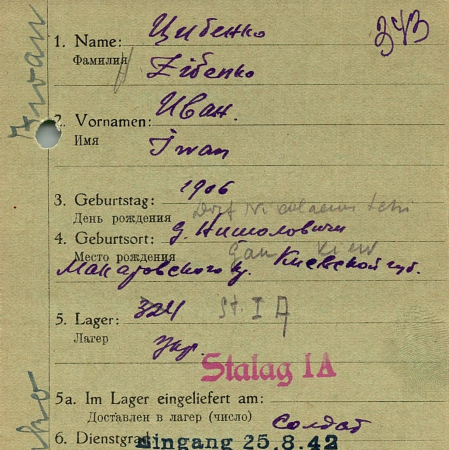 343
Цибенко
1. Name:
Фамилия
Zibenko
Иван.
2. Vornamen:
Имя
Iwan
1906
3. Geburtstag:
День рождения
Dorf
д.
4. Geburtsort:
Место рождения
Gau Kiew
Макаровского р. Киевской губ.
5. Lager: 324 St. I A
Лагер
Укр.
Stalag IA
5a. Im Lager eingeliefert am:
Доставлен в лагер (число)
солдат
6. Dienstgrad
Eingang 25.8.42
Iwan